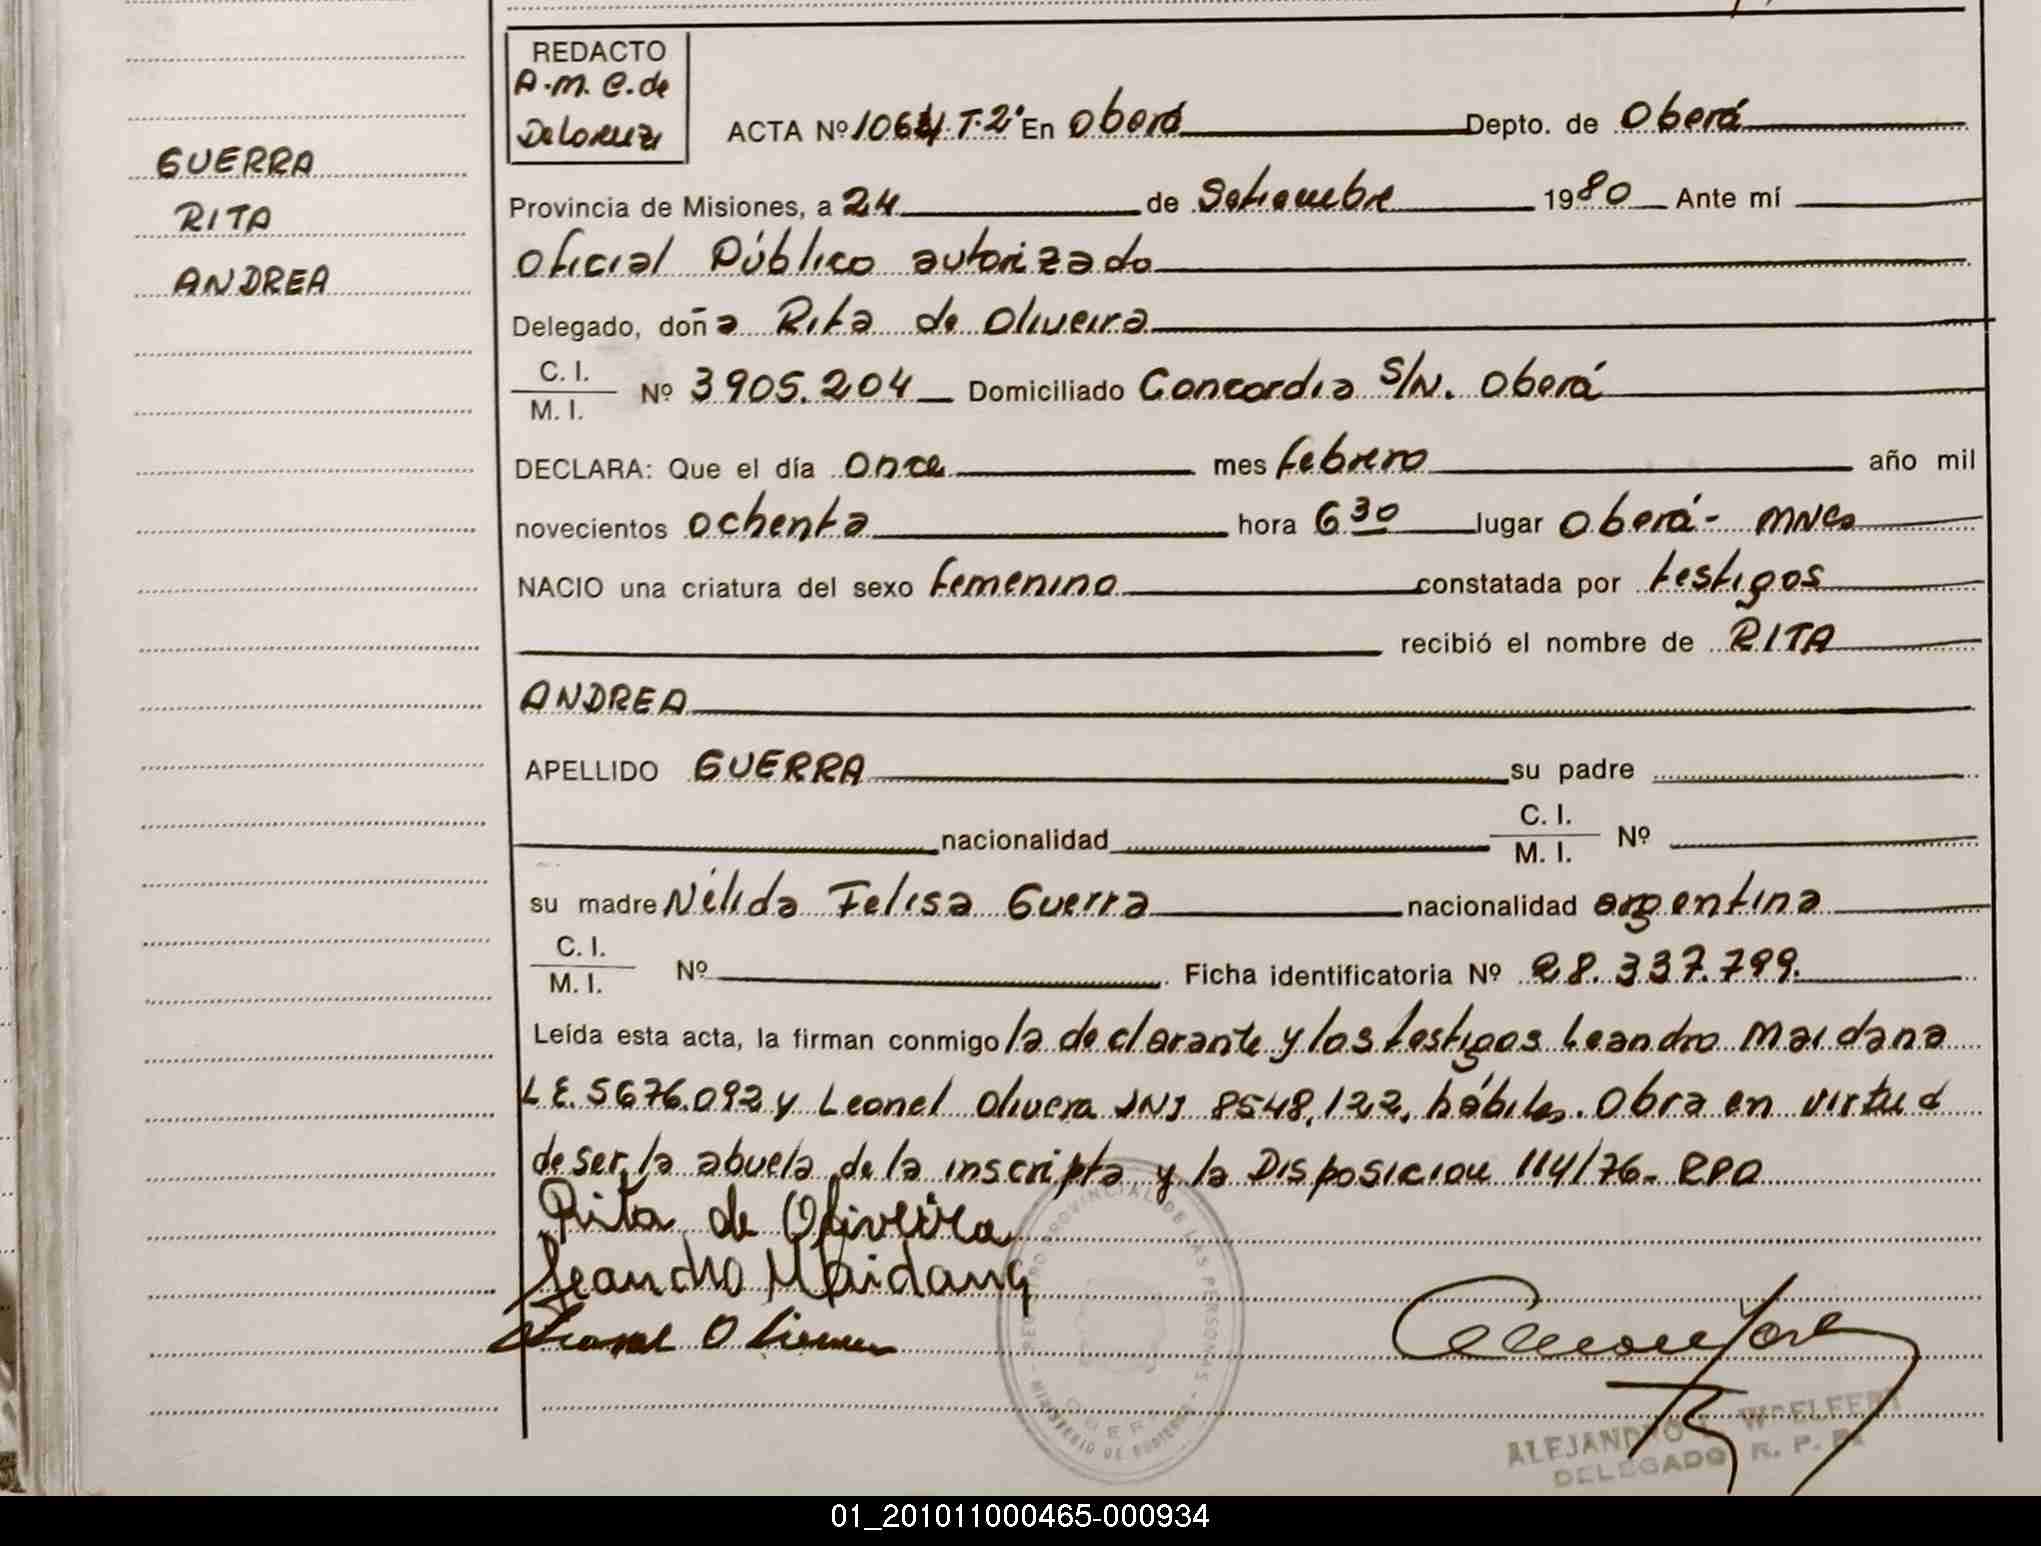 GUERRA
RITA
ANDREA
REDACTO
A.M.C. de
ACTA Nº 1064 T-2º En Oberá Depto. de Oberá
Provincia de Misiones, a 24 de Setiembre 1980 Ante mí
Oficial Público autorizado
Delegado, doña Rita de Oliveira
C. I.
M. I. Nº 3905.204 Domiciliado Concordia S/N. Oberá
DECLARA: Que el día once mes febrero año mil
novecientos ochenta hora 6 30 lugar Oberá - Mnes
NACIO una criatura del sexo femenino constatada por testigos
recibió el nombre de RITA
ANDREA
APELLIDO GUERRA su padre
nacionalidad C. I.
M. I. Nº
su madre Nélida Felisa Guerra nacionalidad argentina
C. I.
M. I. Nº Ficha identificatoria Nº 28.337.799.
Leída esta acta, la firman conmigo la declarante y los testigos Leandro Maidana
L.E. 5676.092 y Leonel Olivera DNI 8548.122. hábiles. Obra en virtud
de ser la abuela de la inscripta y la Disposicion 114/76- RPP
Rita de Oliveira
Leandro Maidana
REGISTRO PROVINCIAL DE LAS PERSONAS - MINISTERIO DE GOBIERNO -
OBERA
DELEGADO R. P. P.
01_201011000465-000934